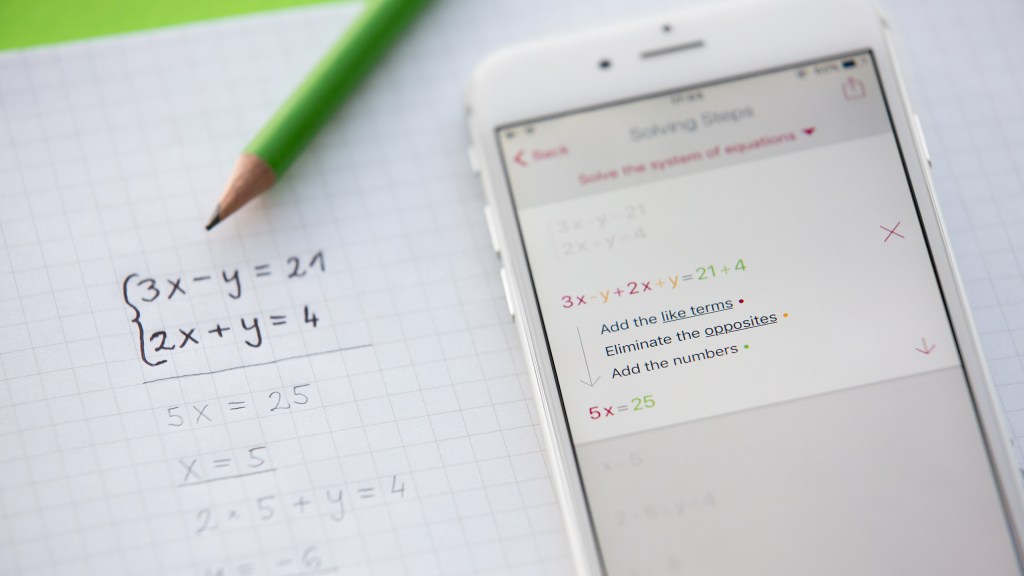 3x - y = 21
2x + y = 4
5x = 25
x = 5
2 * 5 + y = 4
y = -6
Back
Solving Steps
Solve the system of equations
3x - y 21
2x + y = 4
3x-y+2x+y=21+4
Add the like terms
Eliminate the opposites
Add the numbers
5x=25